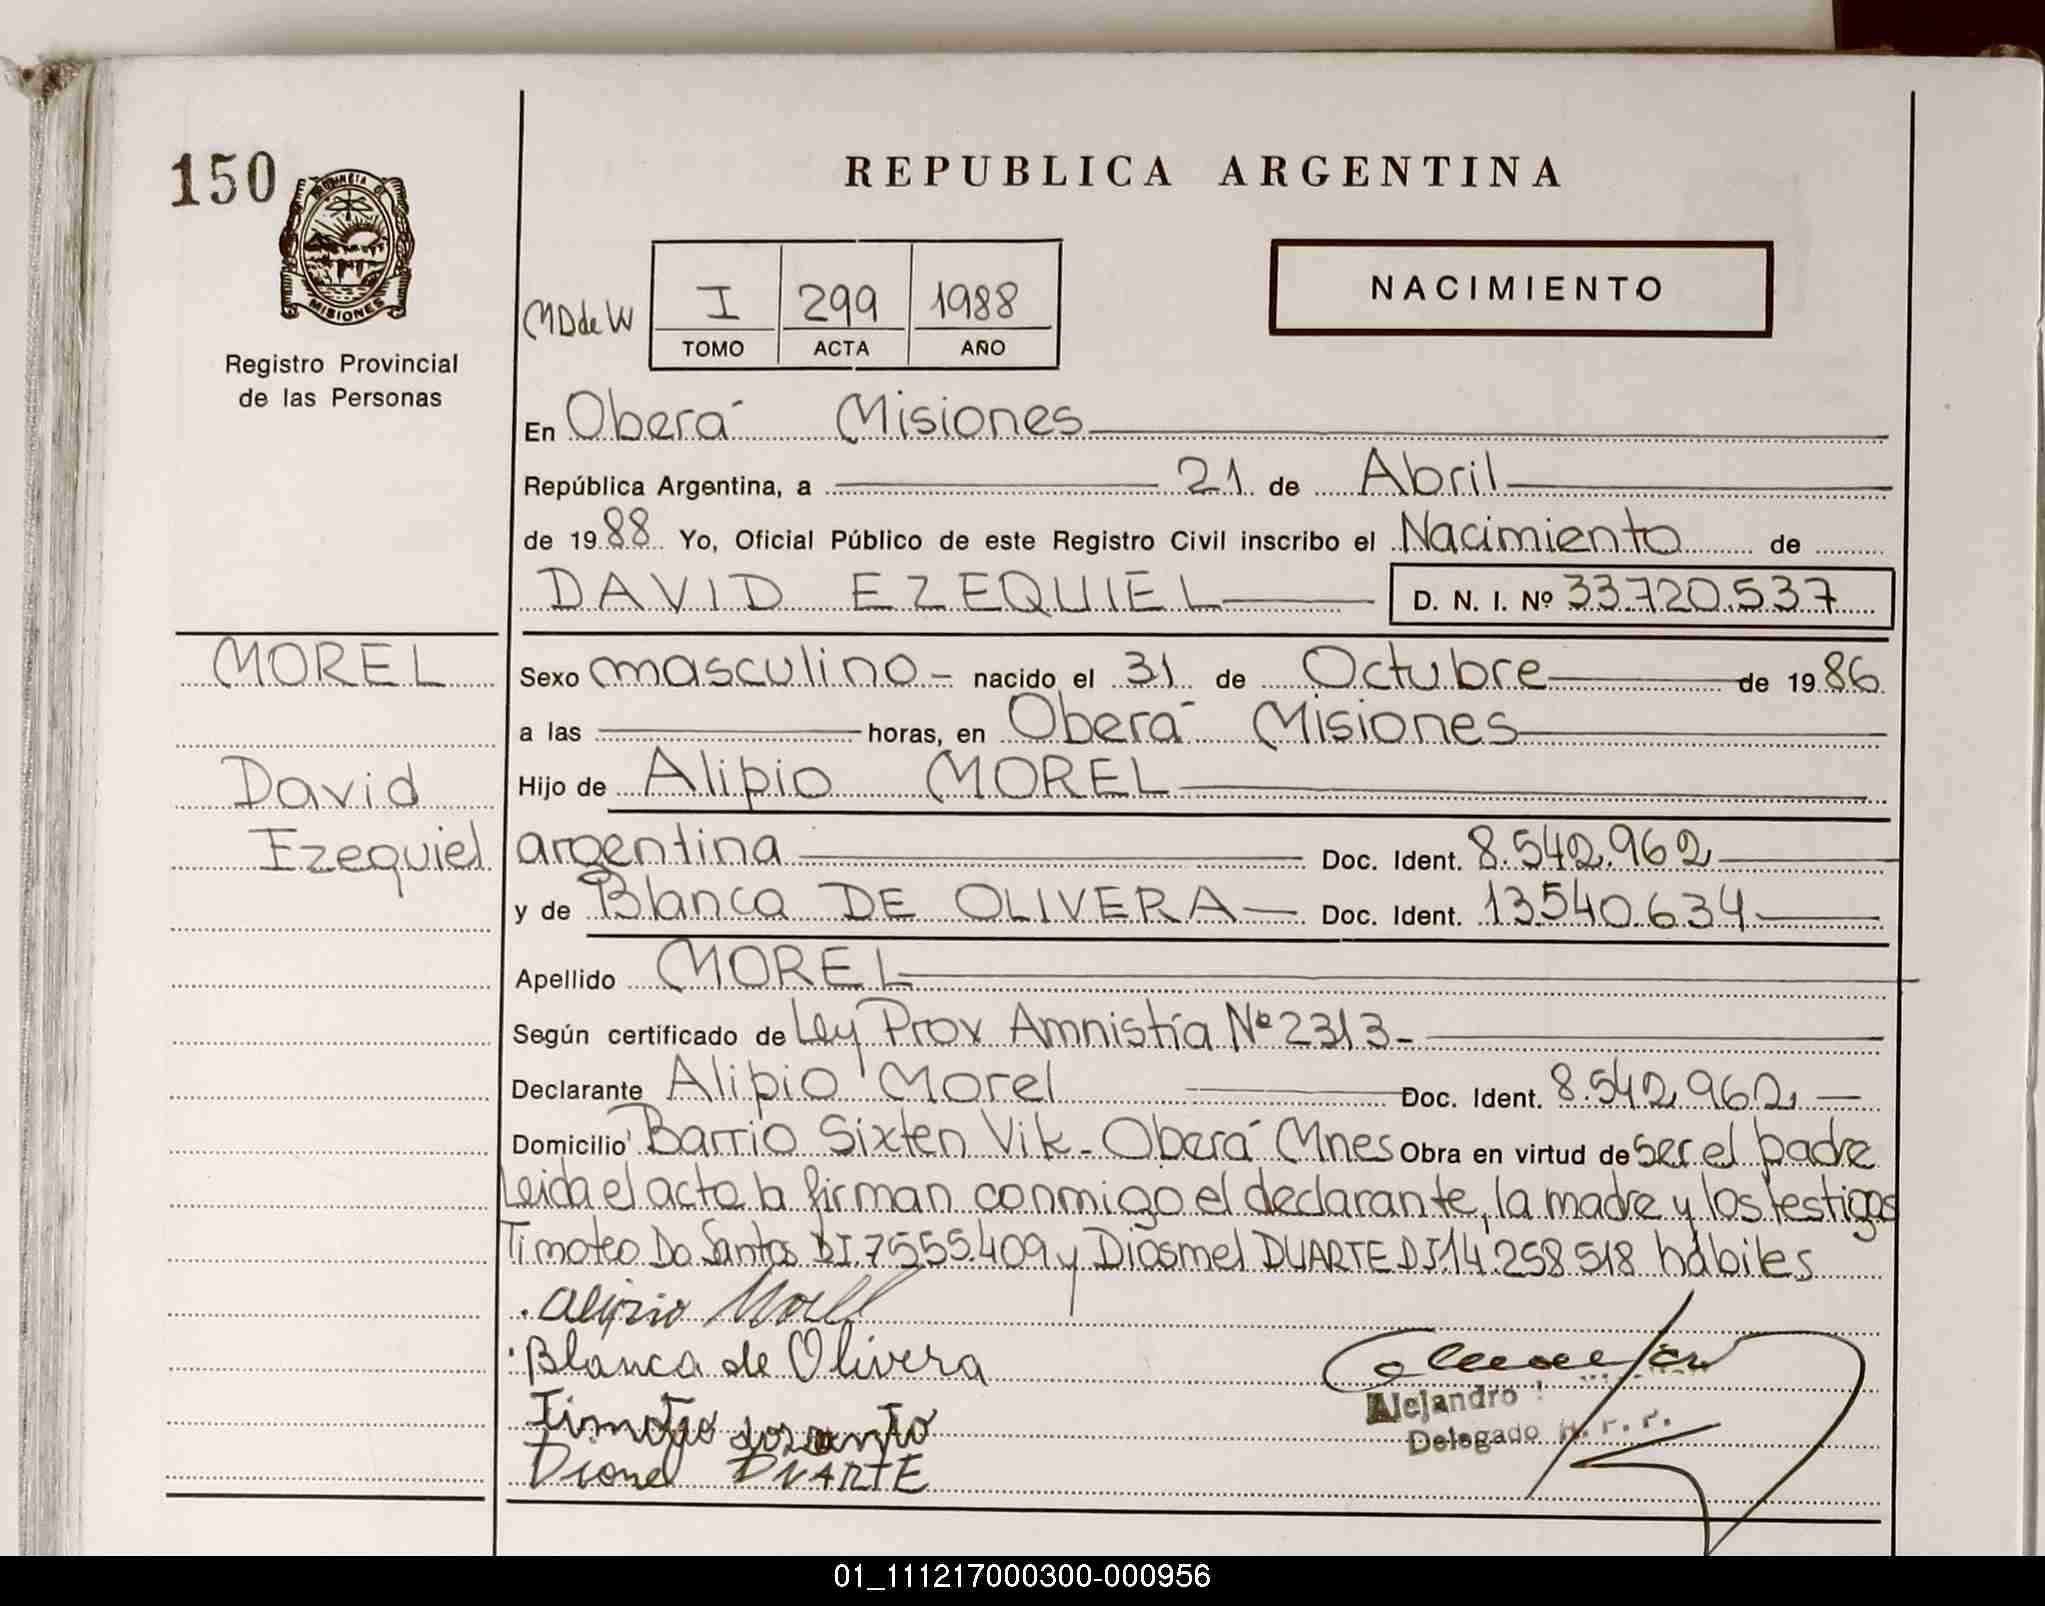 150
REPUBLICA ARGENTINA
PROVINCIA DE
MISIONES
Registro Provincial
de las Personas
MDdeW
I 299 1988
TOMO ACTA AÑO
NACIMIENTO
En Oberá Misiones
República Argentina, a 21 de Abril
de 1988 Yo, Oficial Público de este Registro Civil inscribo el Nacimiento de
DAVID EZEQUIEL D. N. I. Nº 33.720.537
MOREL
David
Ezequiel
Sexo masculino - nacido el 31 de Octubre de 1986
a las horas, en Oberá Misiones
Hijo de Alipio MOREL
argentina Doc. Ident. 8.542.962
y de Blanca DE OLIVERA Doc. Ident. 13540.634
Apellido MOREL
Según certificado de Ley Prov Amnistía Nº 2313-
Declarante Alipio Morel Doc. Ident. 8.542.962
Domicilio Barrio Sixten Vik - Oberá Mnes Obra en virtud de ser el padre
Leida el acta la firman conmigo el declarante, la madre y los testigos
Timoteo Do Santos DI.7555.409 y Diosmel DUARTE DI 14.258.518 hábiles
Alipio Morel
Blanca de Olivera
DUARTE
Alejandro
Delegado R. P. P.
01_111217000300-000956